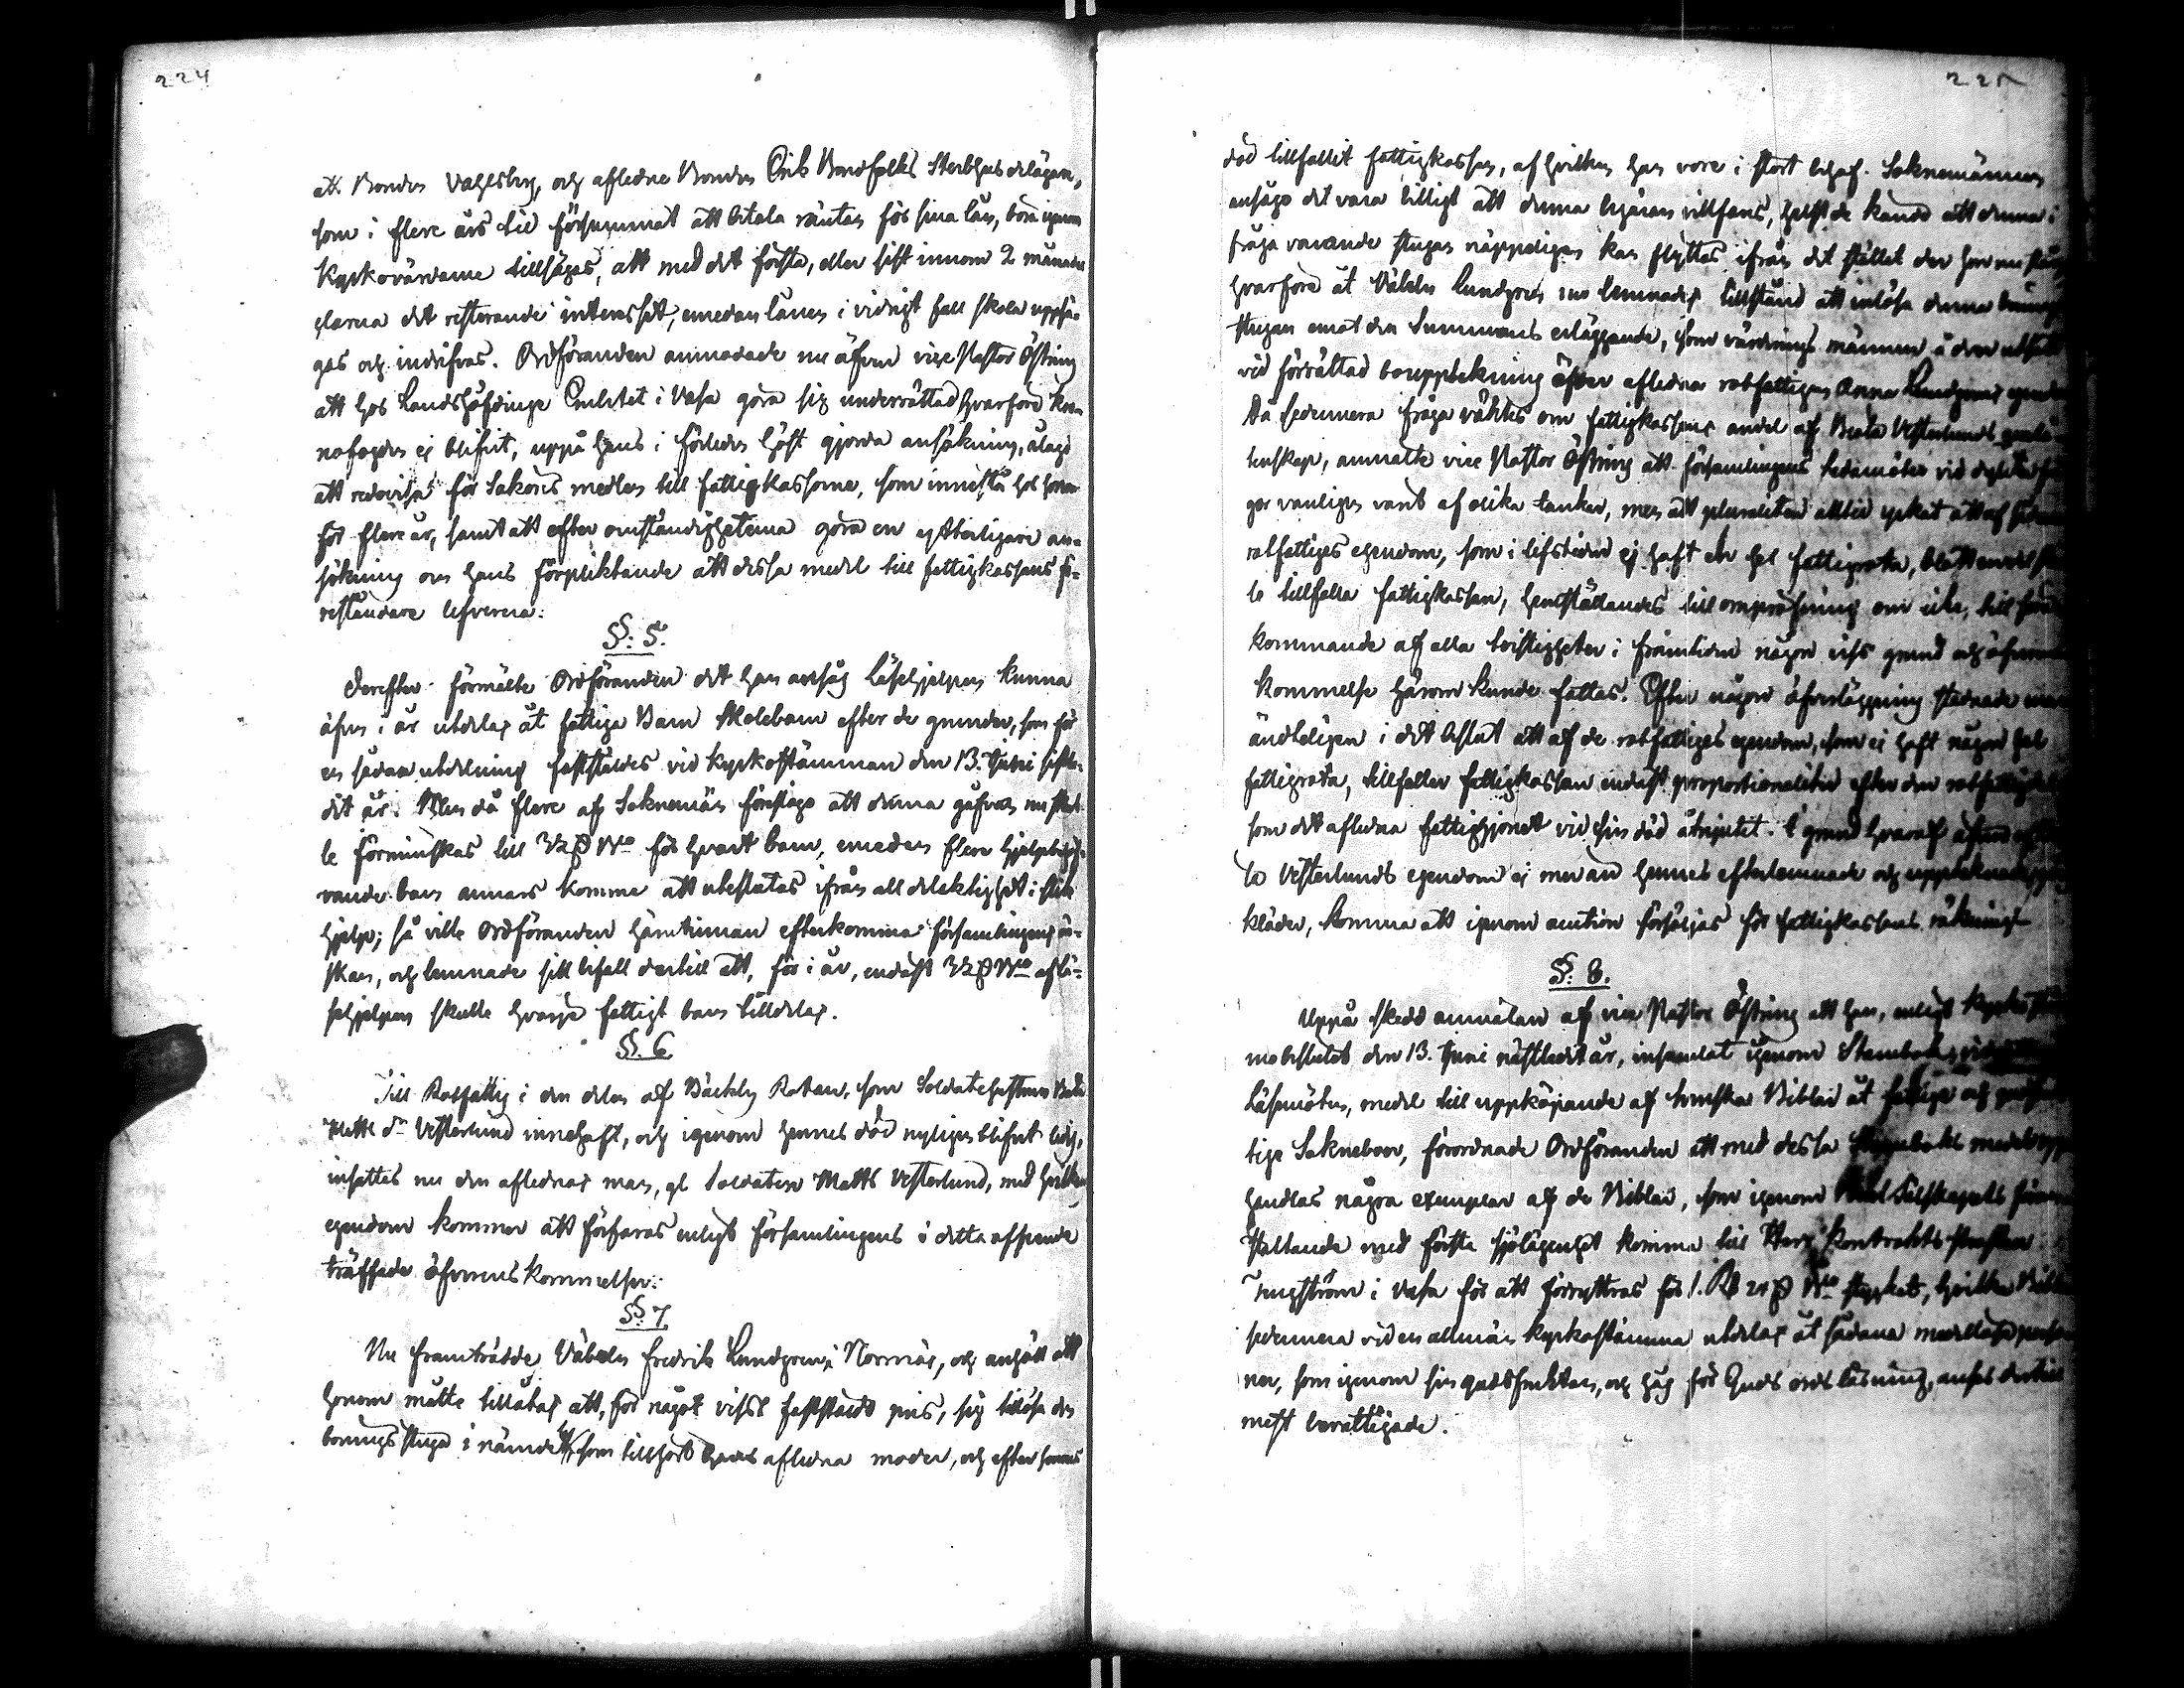 224
att Bonden Vahlsberg, och aflidne Bonden Erik Bondfolks Sterbhus delägare,
som i flere års tid försummat att betala räntan för sina lån, böra igenom
Kyrkovärdarne tillsägas, att med det första, eller sist innom 2 månader
clarera det resterande interesset, emedan lånen i vidrigt fall skola uppsä-
gas och indrifvas. Ordföranden anmodade nu äfven vice Pastor Östring
att hos Landshöfdinge Embetet i Vasa göra sig underrättad hvarföre kro-
nofogden ej blifvit, uppå hans i förleden höst gjorda ansökning, ålagd
att redovisa för Saköres medlen till fattigkassorne, som innestå hos honom
för flere år, samt att efter omständigheterna göra en ytterligare an-
sökning om hans förpliktande att dessa medel till fattigkassans fö-
reståndare lefverera.
§: 5.
Derefter förmälte Ordföranden det han ansåg Läsehjelpen kunna
äfven i år utdelas åt fattiga Barn Skolebarn efter de grunder, som för
en sådan utdelning fastställdes vid kyrkostämman den 13. Junii sistle-
dit år. Men då flere af Soknemän föreslogo att denna gåfva nu skul-
le förminskas till 32 β Bco för hvart barn, emedan flere hjelpbehöf-
vande barn annars komme att uteslutas ifrån all delaktighet i
hjelp; så ville Ordföranden härutinnan efterkomma församlingens ön-
skan, och lemnade sitt bifall dertill att, för i år, endast 32 β Bco af lä-
sehjelpen skulle hvarje fattigt barn tilldelas.
§. 6
Till Rotfattig i den delen af Bäckby Rotan, som Soldatehustrun Beata
Matts dr Vesterlund innehaft, och igenom hennes död nyligen blifvit ledig,
insattes nu den aflednas man, gl. Soldaten Matts Vesterlund, med hvilkens
egendom kommer att förfaras enligt församlingens i detta afseende
träffade öfverenskommelser.
§: 7.
Nu framträdde Väbeln Fredrik Lundgren i Norrnäs, och anhöll att
honom måtte tillåtas att, för något visst faststäldt pris, sig tillösa den
boningsstuga i nämde by, som tillhört hans afledna moder, och efter hennes
225
död tillfallit fattigkassan, af hvilken han vore i stort behof. Soknemännen
ansågo det vara billigt att denna begäran villfars, helst de kände att denna i
fråga varande stugan näppeligen kan flyttas ifrån det stället der hon nu står,
hvarföre åt Väbeln Lundgren nu lemnades tillstånd att inlösa denna
stugan emot den Summans erläggande, som värderings männen å den utsatt
vid förrättad bouppteckning öfver afledna rotfattigen Anna Lundgrens
Då sedermera fråga väktes om fattigkassans andel af Beata Vesterlunds
lenskap, anmälte vice Pastor Östring att församlingens ledamöter vid dylika
gor vanligen varit af olika tankar, men att pluraliten alltid yrkat att af
rotfattiges egendom, som i lifstiden ej haft en hel fattigrota, blott en del
le tillfalla fattigkassan, hemställandes till ompröfning om icke, till före-
kommande af alla tvistigheter i framtiden någon viss grund och öfverens-
kommelse härom kunde fattas. Efter någon öfverläggning stadnade
ändteligen i det beslut att af de rotfattiges egendom, som ej haft någon hel
fattigrota, tillfaller fattigkassan endast proportionaliter efter den
som det afledna fattighjonet vid sin död åtnjutit. I grund hvaraf äfven af
ta Vesterlunds egendom ej mer än hennes efterlemnade och upptecknade
kläder, komma att igenom auction försäljas för fattigkassans räkning.
§: 8.
Uppå skedd anmälan af vice Pastor Östring att han, enligt kyrkostäm-
mobeslutet den 13. Junii nästledit år, insamlat igenom Stambok, vid
Läsmöten, medel till uppköpande af Svenska Biblar åt fattige och
tige Sokneboer, förordnade Ordföranden att med dessa medel upp-
handlas några exemplar af de Biblar, som igenom Bibel Sällskapets
staltande med första sjölägenhet komma till Herr Kontrakts Prosten
i Vasa för att föryttras för 1. Rd 24 β Bco stycket, hvilka
sedermera vid en allmän kyrkostämma utdelas åt sådana medellösa perso-
ner, som igenom sin gudsfruktan, och håg för Guds ords läsning, anses dertill
mest berättigade.